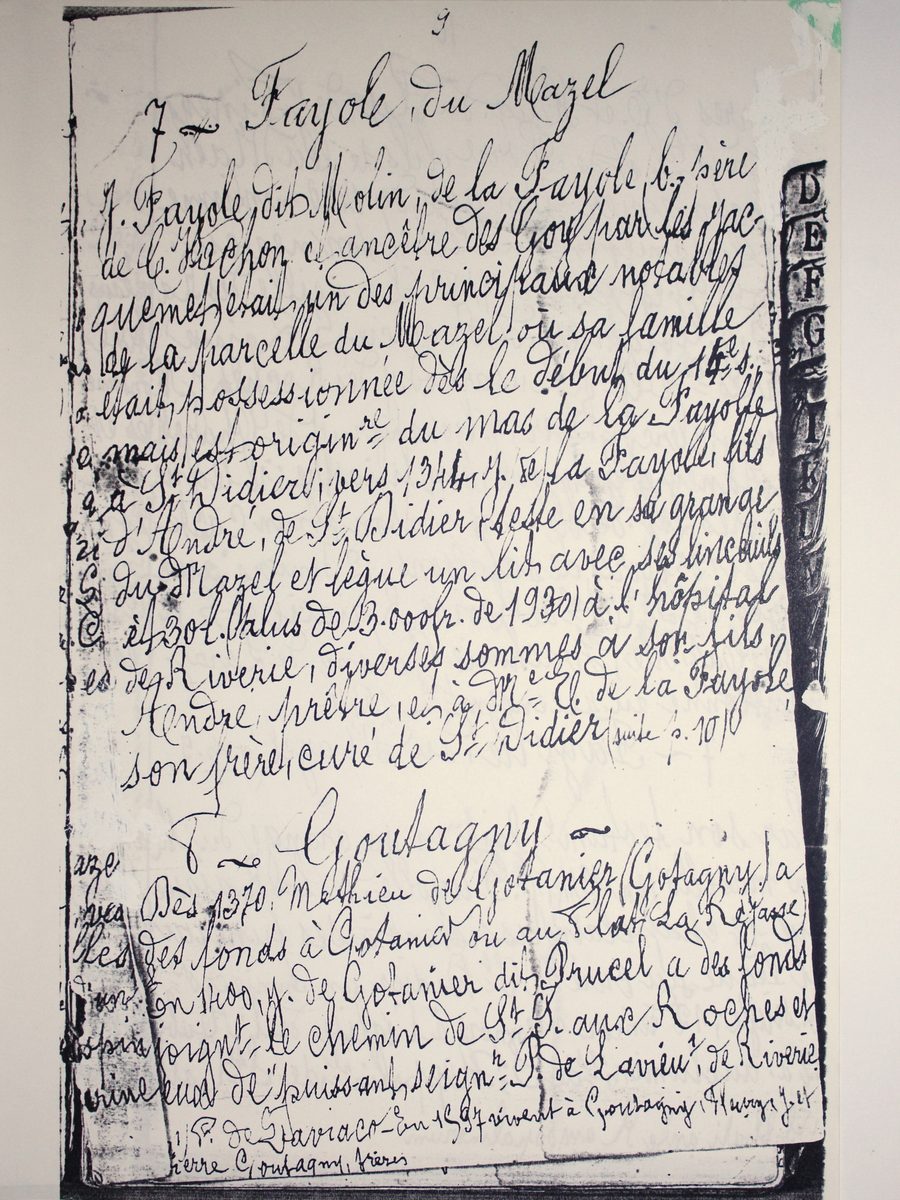 9
7 ~ Fayole, du Mazel
J. Fayole, dit Molin, de la Fayole, b.-père
de C. Hachon et ancêtre des Goy par les Jac-
quemet était un des principaux notables
de la parcelle du Mazel où sa famille
était possessionnée dès le début du 14e s.
mais est origin.re du mas de la Fayolle
à St Didier; vers 1344, J. de la Fayole, fils
d'André, de St Didier, teste en sa grange
du Mazel et lègue un lit avec ses linceuils
et 30 l. (plus de 3.000 fr. de 1930) à l'hôpital
de Riverie, diverses sommes à son fils
André, prêtre, et à Me E. de la Fayole,
son frère, curé de St Didier (suite p. 10)
8 ~ Goutagny ~
Dès 1370, Mathieu de Gotanier (Gotagny) a
des fonds à Gotanier ou au Plat (La Rejasse)
En 1400, J. de Gotanier dit Brucel a des fonds
joignt le chemin de St J. aux Roches et
ceux de puissant seignr P. de Lavieu1, de Riverie
1) P. de Daviaco - En 1597 vivent à Goutagny, Fleury, J. et
Pierre Goutagny, frères
D
E
F
G
I
K